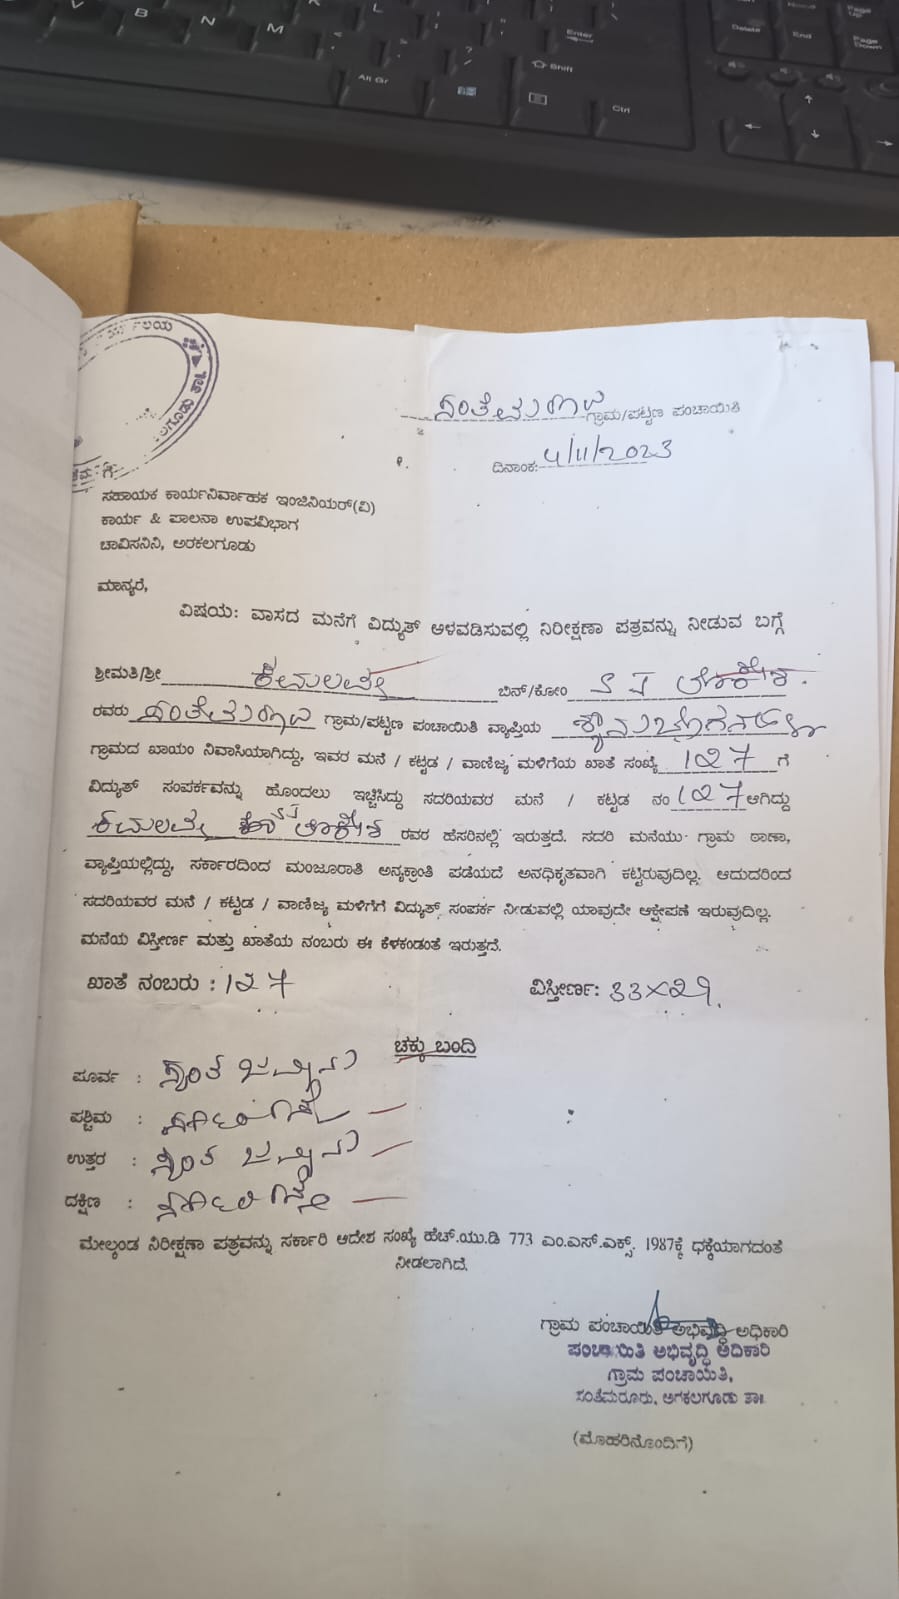 V B N M L Alt Gr Enter Shift Ctrl Delete End Page Up Page Down
ಗ್ರಾಮ/ಪಟ್ಟಣ ಪಂಚಾಯಿತಿ
ದಿನಾಂಕ: 4/11/2023
ಸಹಾಯಕ ಕಾರ್ಯನಿರ್ವಾಹಕ ಇಂಜಿನಿಯರ್(ವಿ)
ಕಾರ್ಯ & ಪಾಲನಾ ಉಪವಿಭಾಗ
ಚಾವಿಸನಿನಿ, ಅರಕಲಗೂಡು
ಮಾನ್ಯರೆ,
ವಿಷಯ: ವಾಸದ ಮನೆಗೆ ವಿದ್ಯುತ್ ಅಳವಡಿಸುವಲ್ಲಿ ನಿರೀಕ್ಷಣಾ ಪತ್ರವನ್ನು ನೀಡುವ ಬಗ್ಗೆ
ಶ್ರೀಮತಿ/ಶ್ರೀ ಬಿನ್/ಕೋಂ
ರವರು ಗ್ರಾಮ/ಪಟ್ಟಣ ಪಂಚಾಯಿತಿ ವ್ಯಾಪ್ತಿಯ
ಗ್ರಾಮದ ಖಾಯಂ ನಿವಾಸಿಯಾಗಿದ್ದು, ಇವರ ಮನೆ / ಕಟ್ಟಡ / ವಾಣಿಜ್ಯ ಮಳಿಗೆಯ ಖಾತೆ ಸಂಖ್ಯೆ 127 ಗೆ
ವಿದ್ಯುತ್ ಸಂಪರ್ಕವನ್ನು ಹೊಂದಲು ಇಚ್ಚಿಸಿದ್ದು ಸದರಿಯವರ ಮನೆ / ಕಟ್ಟಡ ನಂ 127 ಆಗಿದ್ದು
ರವರ ಹೆಸರಿನಲ್ಲಿ ಇರುತ್ತದೆ. ಸದರಿ ಮನೆಯು ಗ್ರಾಮ ಠಾಣಾ,
ವ್ಯಾಪ್ತಿಯಲ್ಲಿದ್ದು, ಸರ್ಕಾರದಿಂದ ಮಂಜೂರಾತಿ ಅನ್ಯಕ್ರಾಂತಿ ಪಡೆಯದೆ ಅನಧಿಕೃತವಾಗಿ ಕಟ್ಟಿರುವುದಿಲ್ಲ. ಆದುದರಿಂದ
ಸದರಿಯವರ ಮನೆ / ಕಟ್ಟಡ / ವಾಣಿಜ್ಯ ಮಳಿಗೆಗೆ ವಿದ್ಯುತ್ ಸಂಪರ್ಕ ನೀಡುವಲ್ಲಿ ಯಾವುದೇ ಆಕ್ಷೇಪಣೆ ಇರುವುದಿಲ್ಲ.
ಮನೆಯ ವಿಸ್ತೀರ್ಣ ಮತ್ತು ಖಾತೆಯ ನಂಬರು ಈ ಕೆಳಕಂಡಂತೆ ಇರುತ್ತದೆ.
ಖಾತೆ ನಂಬರು : 127 ವಿಸ್ತೀರ್ಣ: 33x29
ಚಕ್ಕು ಬಂದಿ
ಪೂರ್ವ : ಸ್ವಂತ ಜಮೀನು
ಪಶ್ಚಿಮ :
ಉತ್ತರ : ಸ್ವಂತ ಜಮೀನು
ದಕ್ಷಿಣ :
ಮೇಲ್ಕಂಡ ನಿರೀಕ್ಷಣಾ ಪತ್ರವನ್ನು ಸರ್ಕಾರಿ ಆದೇಶ ಸಂಖ್ಯೆ ಹೆಚ್.ಯು.ಡಿ 773 ಎಂ.ಎಸ್.ಎಕ್ಸ್. 1987ಕ್ಕೆ ಧಕ್ಕೆಯಾಗದಂತೆ
ನೀಡಲಾಗಿದೆ.
ಗ್ರಾಮ ಪಂಚಾಯಿತಿ ಅಭಿವೃದ್ಧಿ ಅಧಿಕಾರಿ
ಪಂಚಾಯಿತಿ ಅಭಿವೃದ್ಧಿ ಅದಿಕಾರಿ
ಗ್ರಾಮ ಪಂಚಾಯಿತಿ,
ಸಂತೆಮರೂರು, ಅರಕಲಗೂಡು ತಾ॥
(ಮೊಹರಿನೊಂದಿಗೆ)